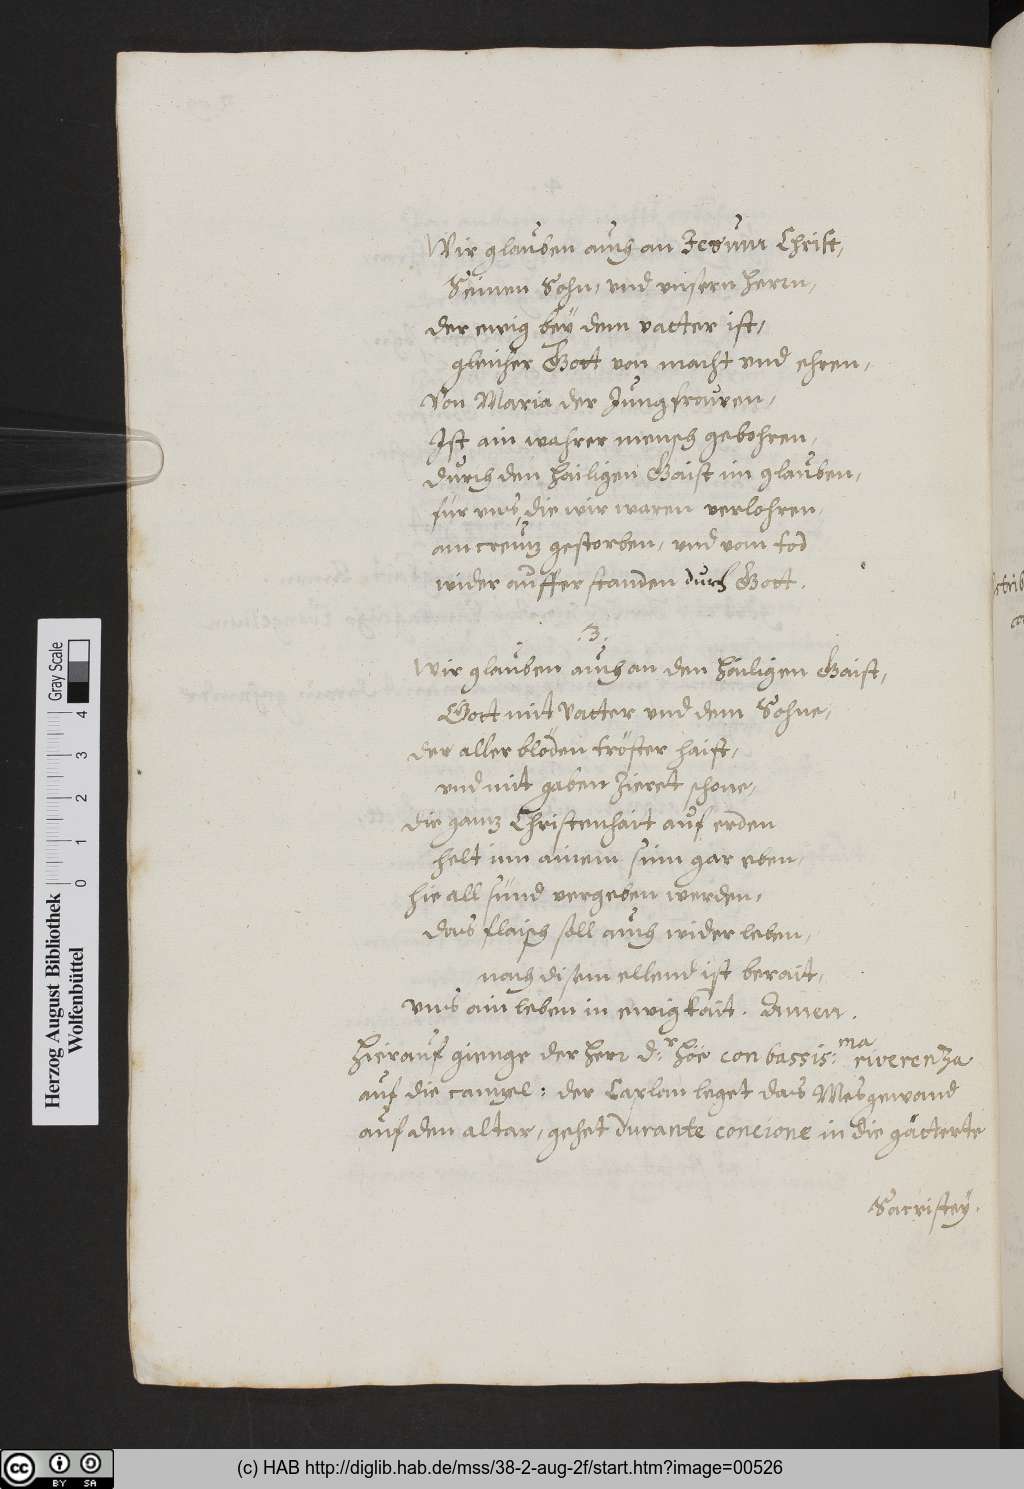 Wir glauben auch an Jesum Christ,
Seinen Sohn, vnd vnsern herrn,
der ewig beÿ dem vatter ist,
gleicher Gott von macht vnd ehren,
Von Maria der Jungfrauen,
Ist ain wahrer mensch gebohren,
durch den hailigen Gaist im glauben,
für vns, die wir waren verlohren,
am creutz gestorben, vnd vom tod
wider aufferstanden durch Gott.
.3.
Wir glauben auch an den hailigen Gaist,
Gott mit Vatter vnd dem Sohne,
der aller blöden tröster haist,
vnd mit gaben zieret schone,
die gantz Christenhait auf erden
helt inn ainem sinn gar eben,
hie all sünd vergeben werden,
das flaisch soll auch wider leben,
nach disem ellend ist berait,
vns ain leben in ewigkait. Amen.
hierauf gienge der herr d.r höe con bassis:ma riverenza
auf die cantzel: der Caplan leget das Mesgewand
auf den altar, gehet durante concione in die gätterte
Sacristeÿ.
Herzog August Bibliothek
Wolfenbüttel
0 1 2 3 4
Gray Scale
cc BY SA
(c) HAB http://diglib.hab.de/mss/38-2-aug-2f/start.htm?image=00526